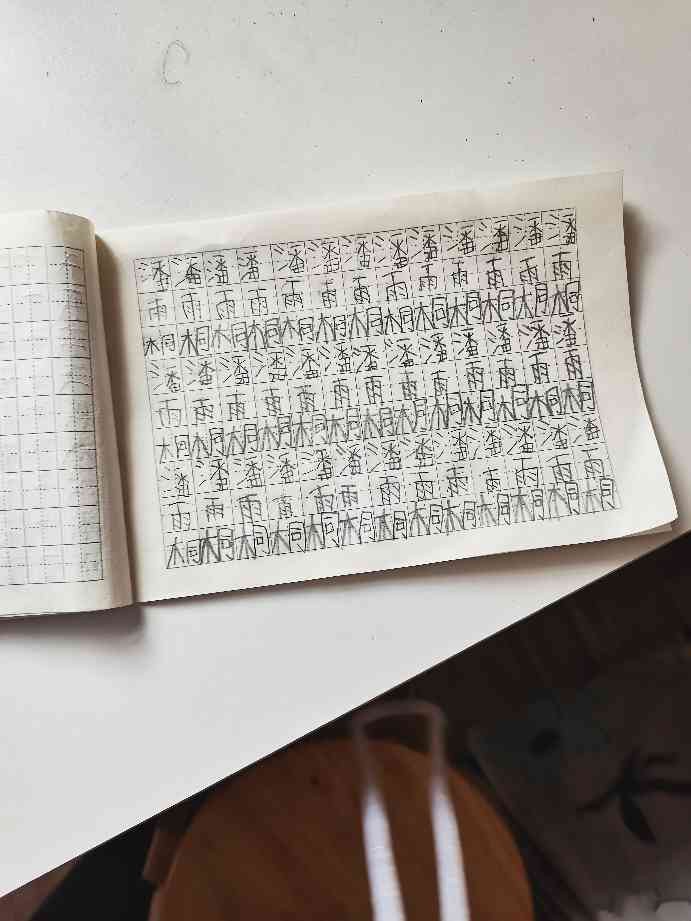 C
潘潘潘潘潘潘潘潘潘潘潘潘潘
雨雨雨雨雨雨雨雨雨雨雨雨雨
桐桐桐桐桐桐桐桐桐桐桐桐桐
潘潘潘潘潘潘潘潘潘潘潘潘潘
雨雨雨雨雨雨雨雨雨雨雨雨雨
桐桐桐桐桐桐桐桐桐桐桐桐桐
潘潘潘潘潘潘潘潘潘潘潘潘潘
雨雨雨雨雨雨雨雨雨雨雨雨雨
桐桐桐桐桐桐桐桐桐桐桐桐桐